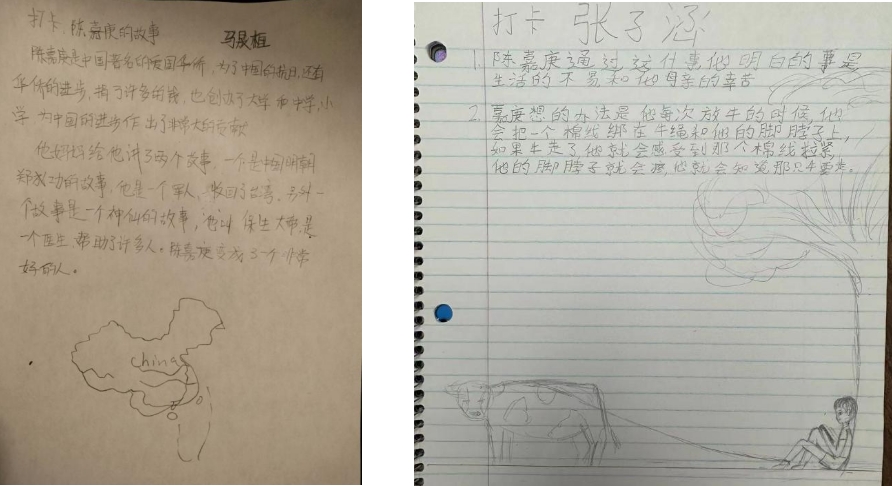 打卡，陈嘉庚的故事
马晟桓
陈嘉庚是中国著名的爱国华侨，为了中国的抗日，还有
华侨的进步，捐了许多的钱，也创办了大学和中学，小
学 为中国的进步作出了非常大的贡献
他妈妈给他讲了两个故事，一个是中国明朝
郑成功的故事，他是一个军人，收回了台湾，另外一
个故事是一个神仙的故事，他叫保生大帝，是
一个医生，帮助了许多人。陈嘉庚变成了一个非常
好的人。
china
打卡 张子涵
1. 陈嘉庚通过这件事他明白的事是
生活的不易和他母亲的辛苦
2. 嘉庚想的办法是他每次放牛的时候，他
会把一个棉线绑在牛绳和他的脚脖子上，
如果牛走了他就会感受到那个棉线拉紧，
他的脚脖子就会疼，他就会知道那只牛要走。